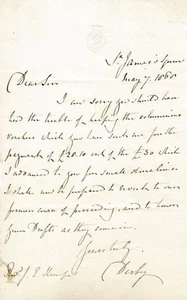 St. James's Square
May 7. 1860
Dear Sir
I am sorry you should have
had the trouble of keeping the voluminous
vouchers which you have sent me for the
payment of £20.10 out of the £30 which
I advanced to you for small donations.
I shall be prepared to revert to our
former course of proceeding, and to honor
your Drafts as they come in.
Yours truly,
Derby